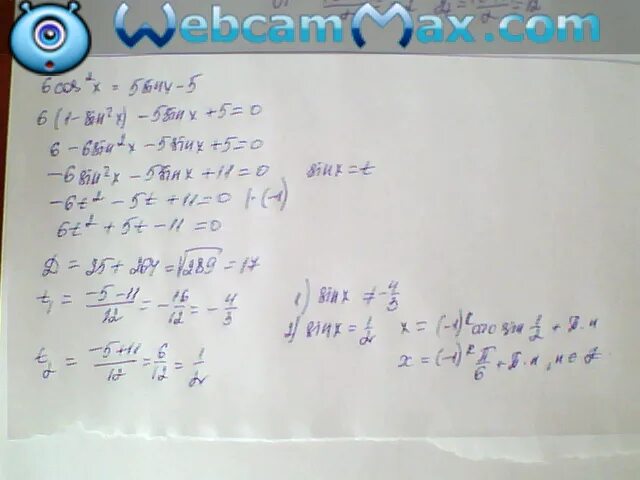 WebcamMax.com
6cos²x = 5sinx-5
6(1-sin²x) -5sinx+5=0
6-6sin²x-5sinx+5=0
-6sin²x-5sinx+11=0 sinx=t
-6t²-5t+11=0 |·(-1)
6t²+5t-11=0
D=25+264=√289=17
t₁ = (-5-11)/12 = -16/12 = -4/3 1) sinx ≠ -4/3
2) sinx=1/2 x=(-1)ᵏ arcsin 1/2 + π·n
t₂ = (-5+11)/12 = 6/12 = 1/2 x=(-1)ᵏ π/6 + π·n, n∈Z